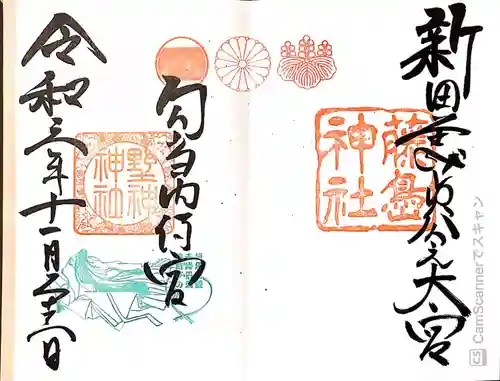 新田義貞公
大宮
藤島
神社
勾当内侍宮
野神
神社
令和三年十一月
CS CamScannerでスキャン